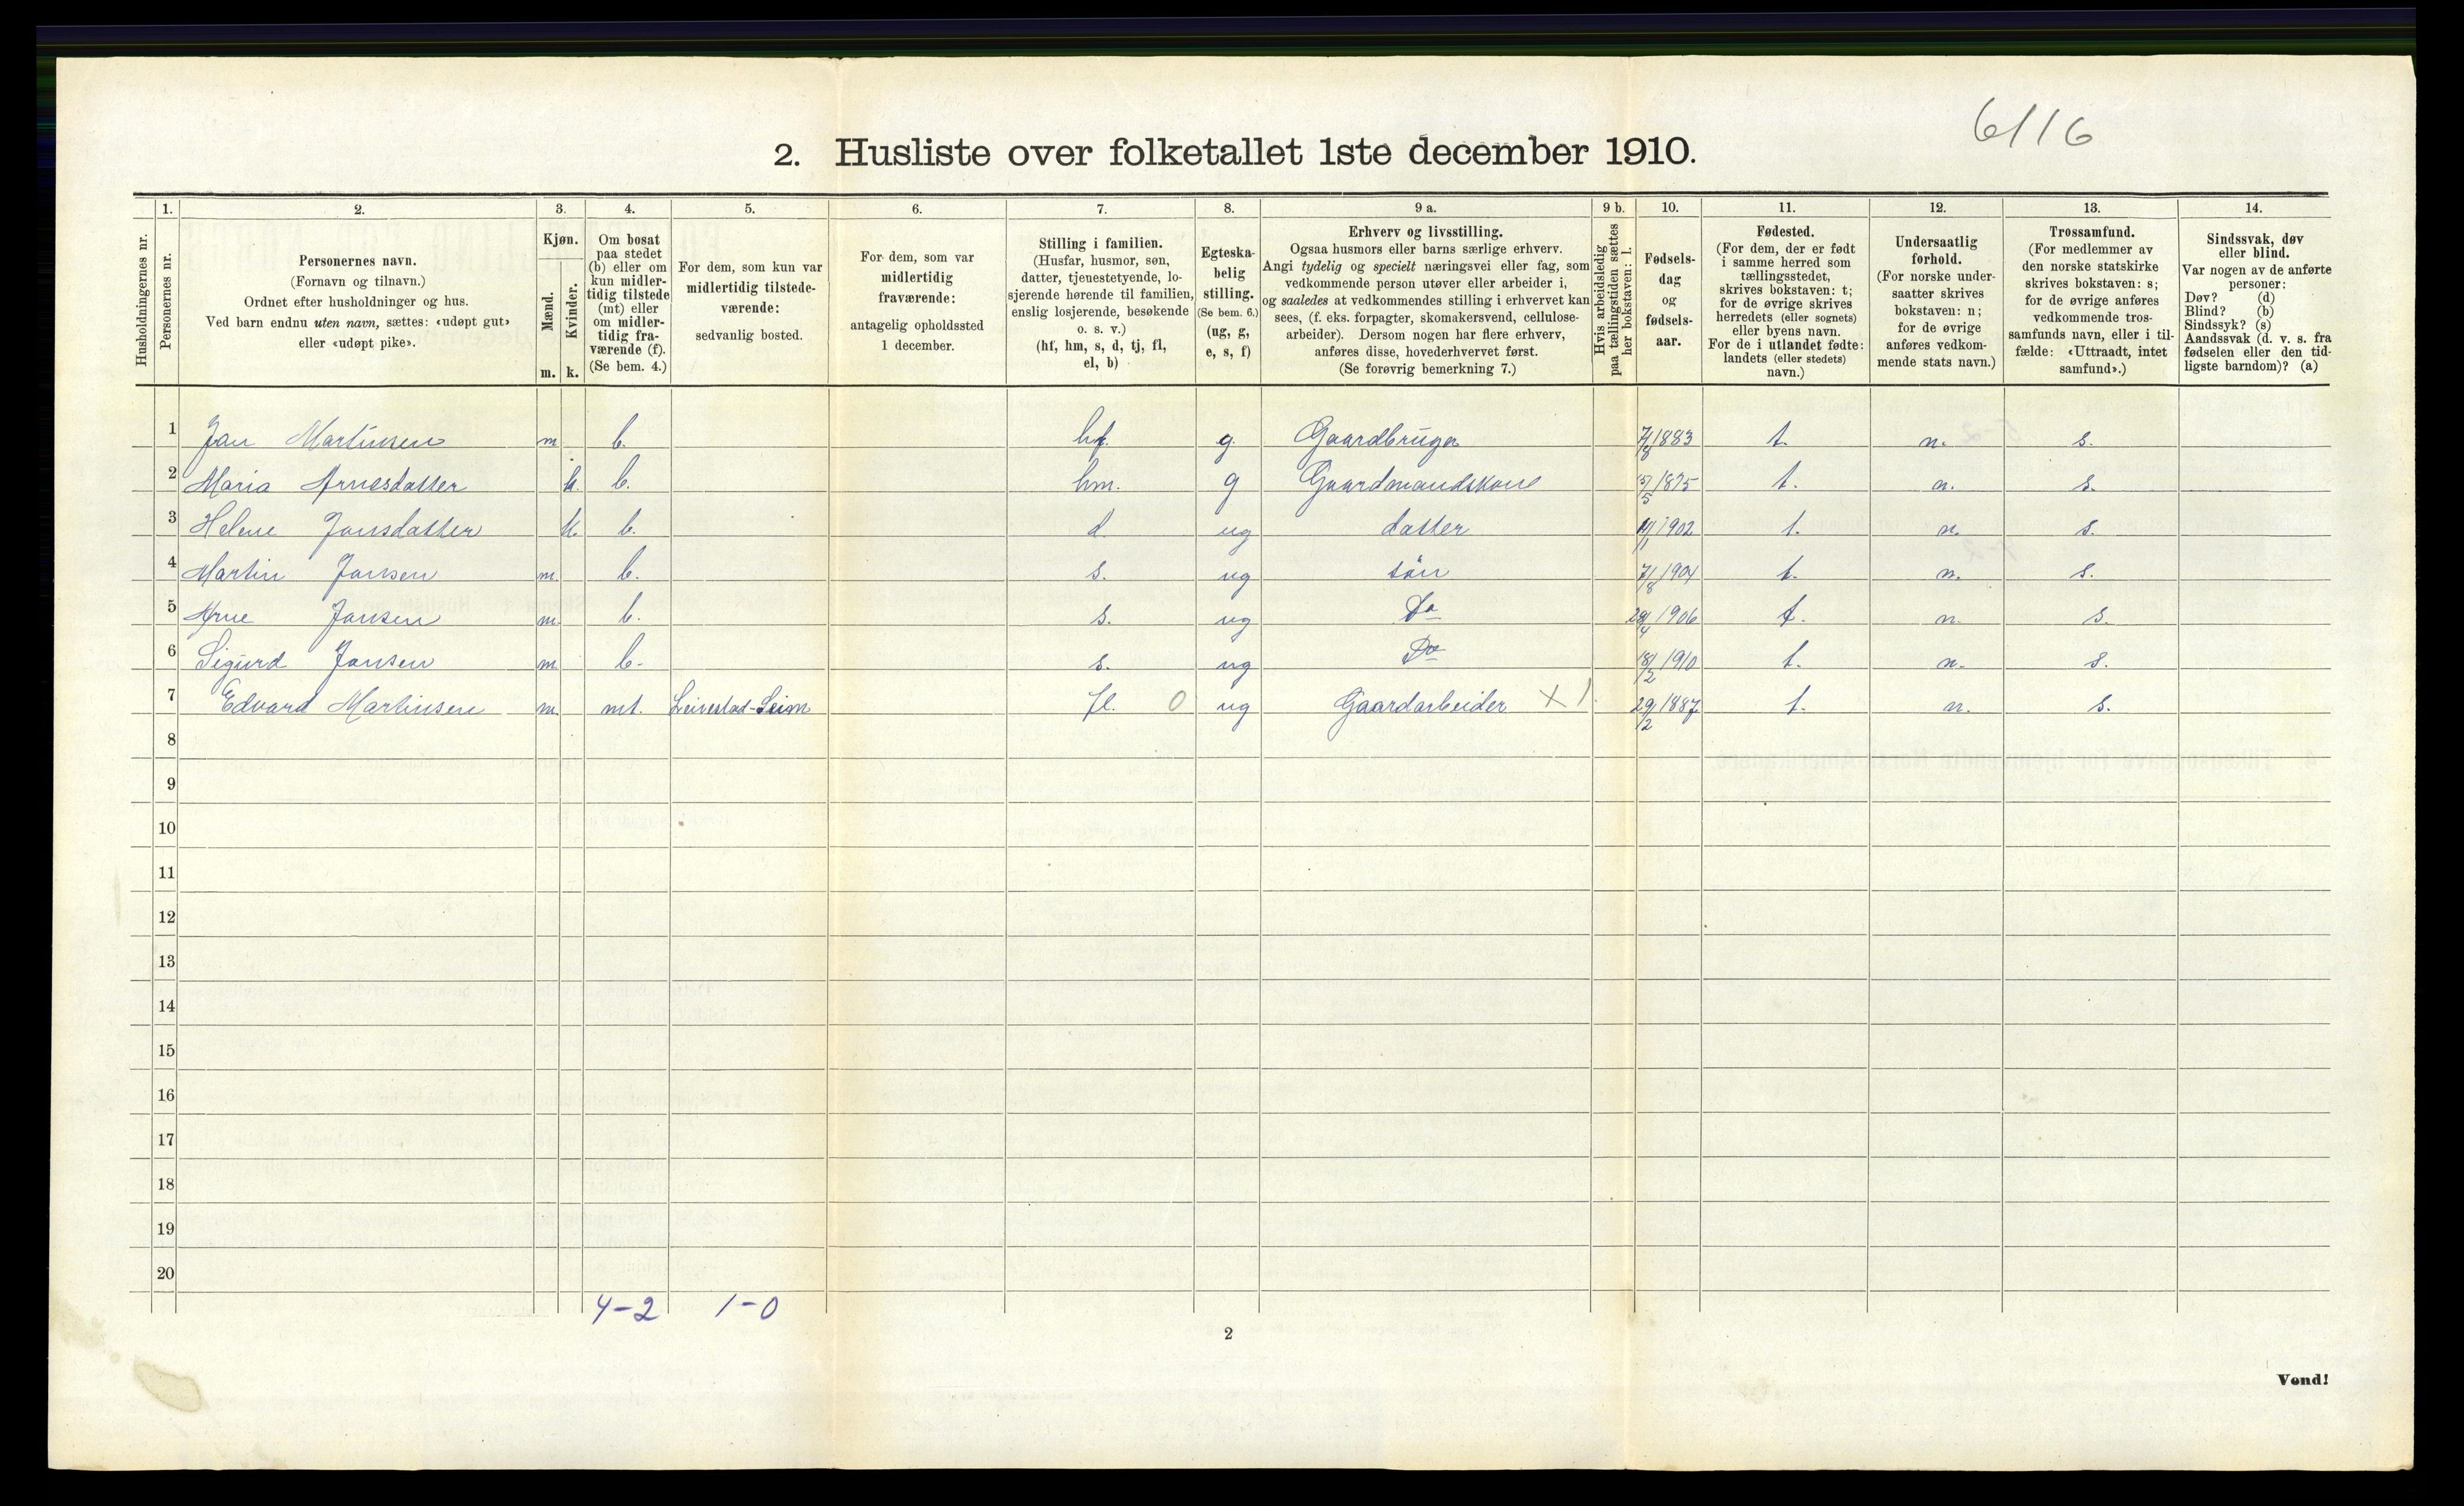 6/16
2. Husliste over folketallet 1ste december 1910.
Husholdningernes nr.
1.
Personernes nr.
2.
Personernes navn.
(Fornavn og tilnavn.)
Ordnet efter husholdninger og hus.
Ved barn endnu uten navn, sættes: «udøpt gut»
eller «udøpt pike».
3.
Kjøn.
Mænd.
Kvinder.
m. k.
4.
Om bosat
paa stedet
(b) eller om
kun midler-
tidig tilstede
(mt) eller
om midler-
tidig fra-
værende (f).
(Se bem. 4.)
5.
For dem, som kun var
midlertidig tilstede-
værende:
sedvanlig bosted.
6.
For dem, som var
midlertidig
fraværende:
antagelig opholdssted
1 december.
7.
Stilling i familien.
(Husfar, husmor, søn,
datter, tjenestetyende, lo-
sjerende hørende til familien,
enslig losjerende, besøkende
o. s. v.)
(hf, hm, s, d, tj, fl,
el, b)
8.
Egteska-
belig
stilling.
(Se bem. 6.)
(ug, g,
e, s, f)
9 a.
Erhverv og livsstilling.
Ogsaa husmors eller barns særlige erhverv.
Angi tydelig og specielt næringsvei eller fag, som
vedkommende person utøver eller arbeider i,
og saaledes at vedkommendes stilling i erhvervet kan
sees, (f. eks. forpagter, skomakersvend, cellulose-
arbeider). Dersom nogen har flere erhverv,
anføres disse, hovederhvervet først.
(Se forøvrig bemerkning 7.)
9 b.
Hvis arbeidsledig
paa tællingstiden sættes
her bokstaven: l.
10.
Fødsels-
dag
og
fødsels-
aar.
11.
Fødested.
(For dem, der er født
i samme herred som
tællingsstedet,
skrives bokstaven: t;
for de øvrige skrives
herredets (eller sognets)
eller byens navn.
For de i utlandet fødte:
landets (eller stedets)
navn.)
12.
Undersaatlig
forhold.
(For norske under-
saatter skrives
bokstaven: n;
for de øvrige
anføres vedkom-
mende stats navn.)
13.
Trossamfund.
(For medlemmer av
den norske statskirke
skrives bokstaven: s;
for de øvrige anføres
vedkommende tros-
samfunds navn, eller i til-
fælde: «Uttraadt, intet
samfund».)
14.
Sindssvak, døv
eller blind.
Var nogen av de anførte
personer:
Døv? (d)
Blind? (b)
Sindssyk? (s)
Aandssvak (d. v. s. fra
fødselen eller den tid-
ligste barndom)? (a)
1 Jan Martinsen m b. hf. g. Gaardbruger 7/8 1883 t. n. s.
2 Maria Arnesdatter k. b. hm. g Gaardmandskone 15/5 1875 t. n. s.
3 Helene Jansdatter k. b. d. ug datter 11/1 1902 t. n. s.
4 Martin Jansen m. b. s. ug sön 7/8 1904 t. n. s.
5 Arne Jansen m. b. s. ug Do 28/4 1906 t. n. s.
6 Sigurd Jansen m. b. s. ug Do 18/2 1910 t. n. s.
7 Edvard Martinsen m. mt. Leivestad-Seim fl. 0 ug Gaardarbeider X 1. 29/2 1887 t. n. s.
8
9
10
11
12
13
14
15
16
17
18
19
20
4-2 1-0
2
Vend!